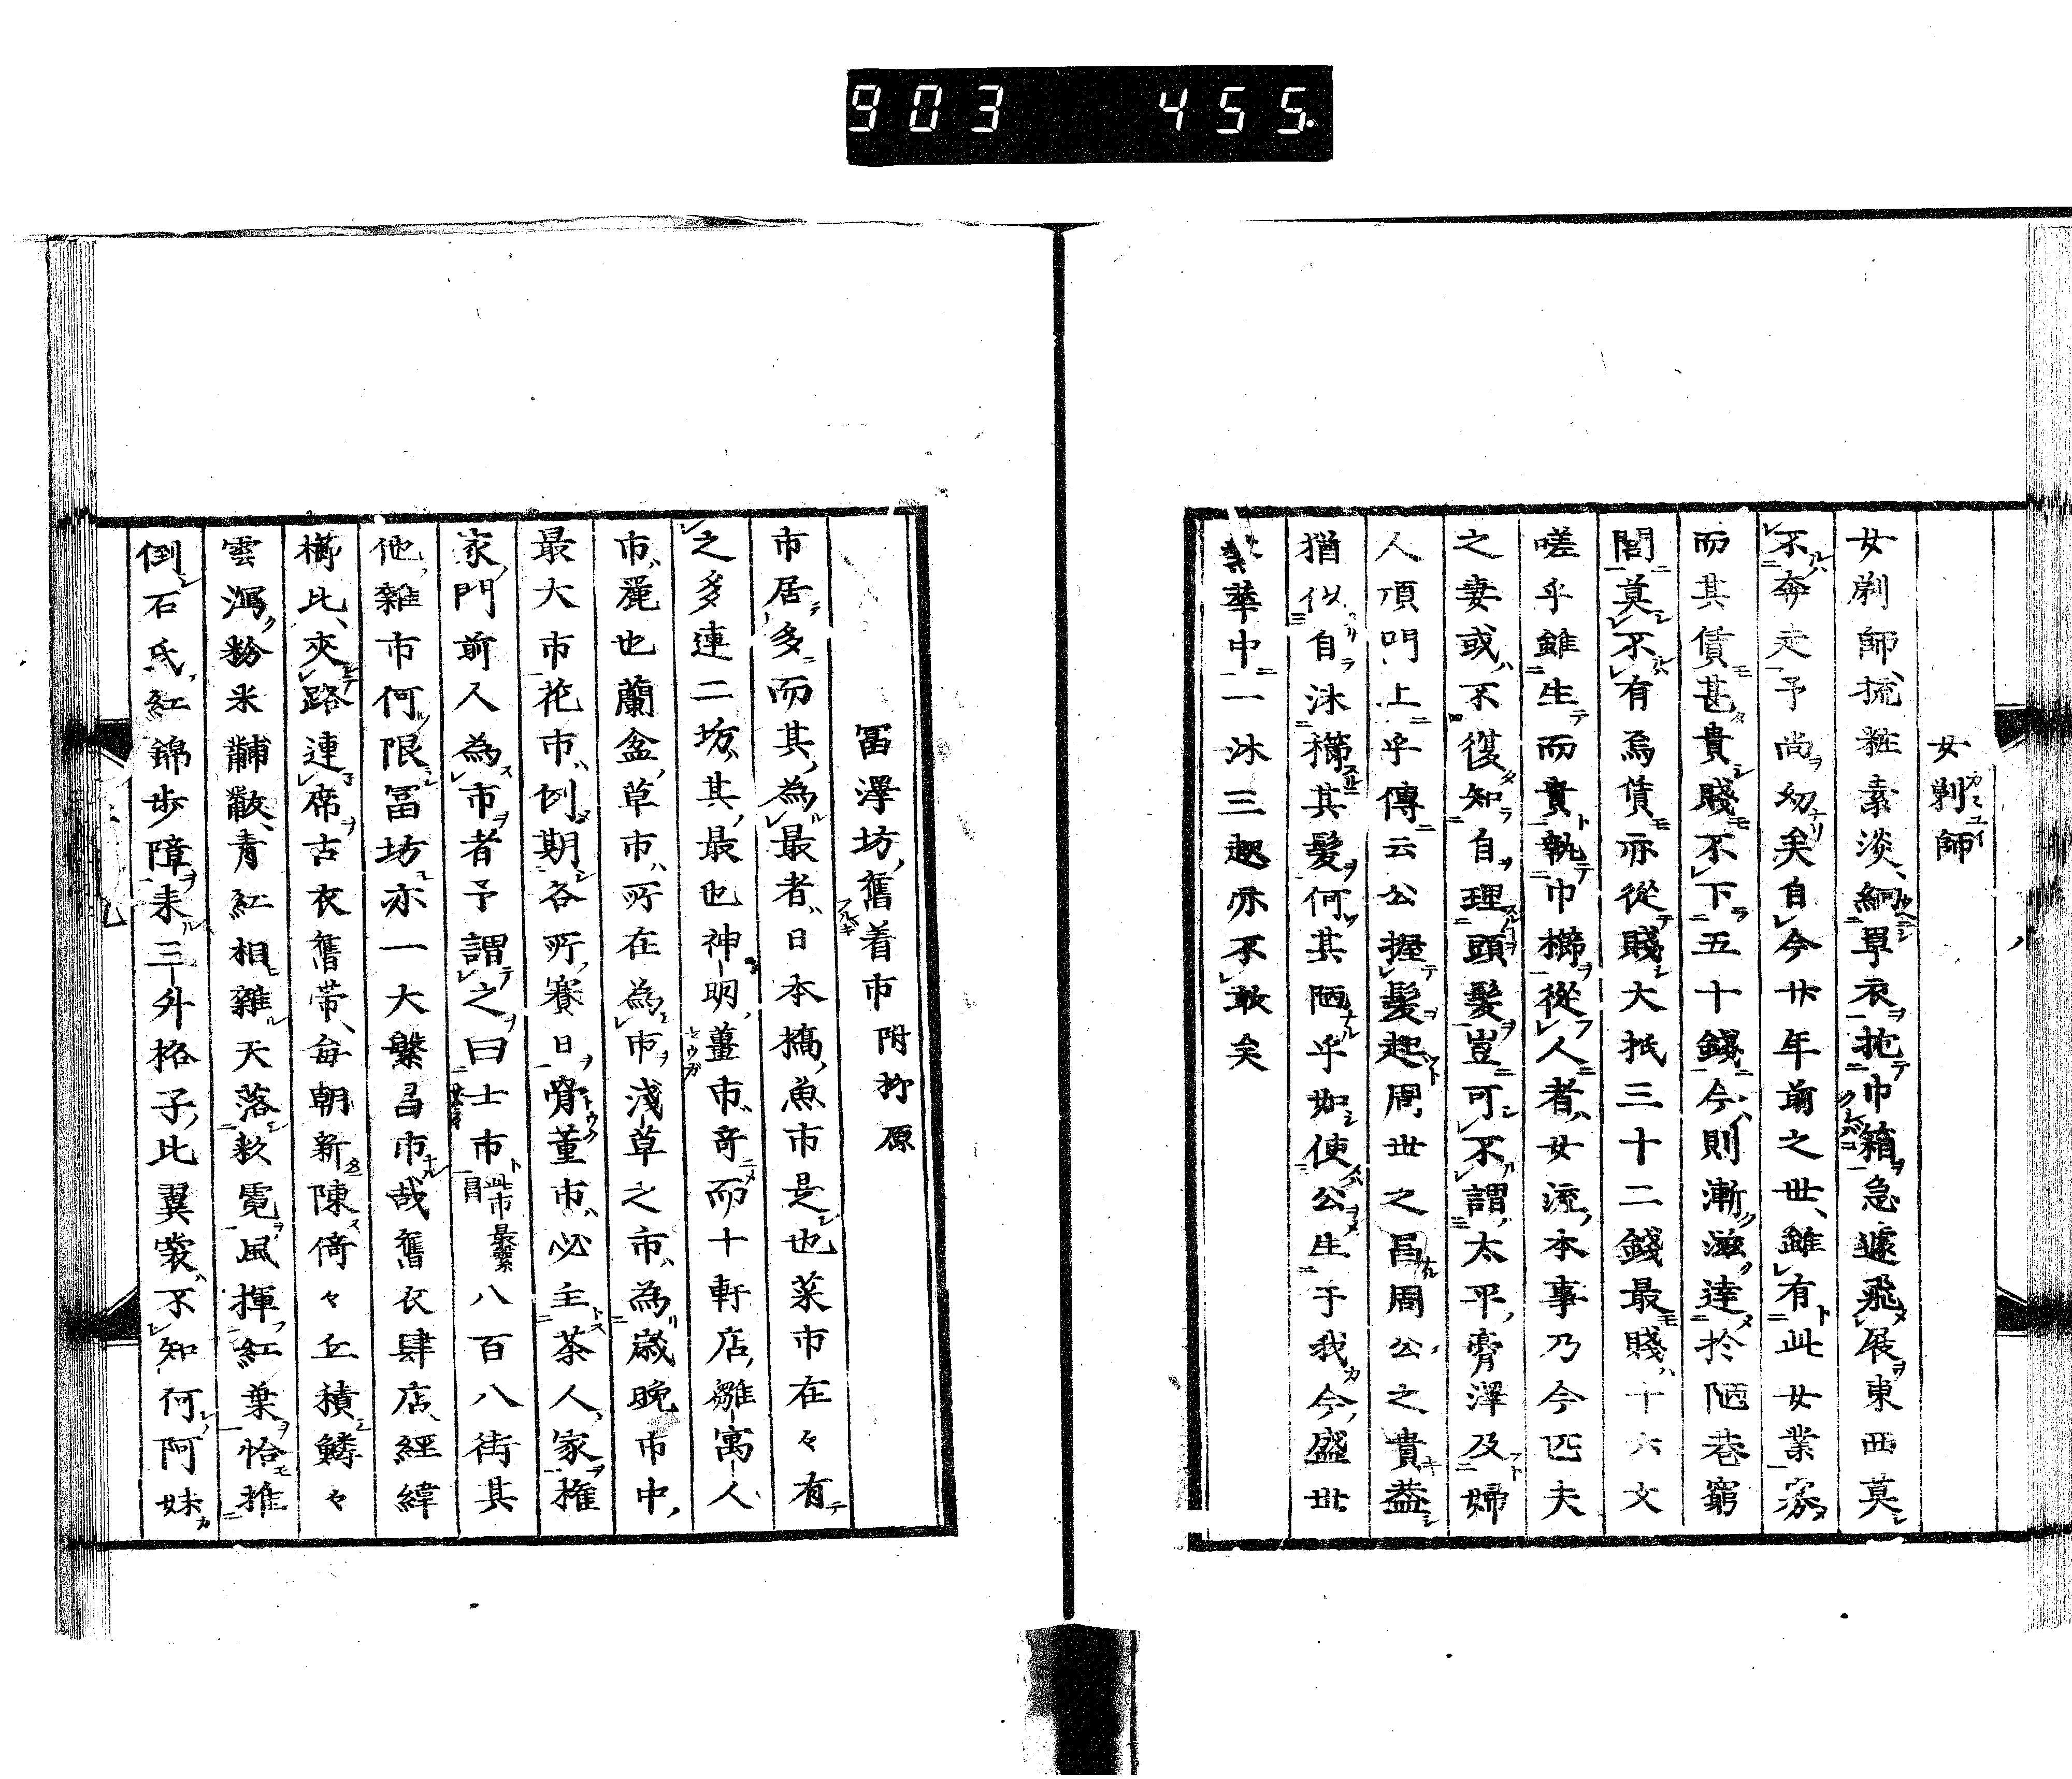 903 455.
女剃師
女剃師、梳粧素淡、絅單衣抱巾箱急遽飛展東西莫
不奔走予尚幼矣自今廿年前之世、雖有此女業家
而其賃甚貴賤不下五十錢今則漸滋達於陋巷窮
閻莫不有為賃亦從賤大抵三十二錢最賤十六文
嗟乎雖生而貴執巾櫛從人者女流本事乃今匹夫
之妻或不復知自理頭髮豈可不謂太平膏澤及婦
人頂門上乎傳云公握髮起周世之昌周公之貴蓋
猶似自沐櫛其髮何其陋乎如使公生于我今盛世
繁華中一沐三起亦不敢矣
冨澤坊舊着市附柳原
市居多而其為最者日本橋魚市是也菜市在々有
之多連二坊其最也神明薑市奇而十軒店雛寓人
市麗也蘭盆草市所在為市淺草之市為歲晚市中
最大市花市例期各所賽日骨董市必主茶人家権
家門前人為市者予謂之曰士市此市最繁昌八百八街其
他雜市何限冨坊亦一大繁昌市哉舊衣肆店經緯
櫛比夾路連席古衣舊帶、每朝新陳倚々丘積鱗々
雲瀉粉米黼黻青紅相雜天落数霓風揮紅葉恰推
倒石氏紅錦步障来三升格子比翼裳不知何阿妹